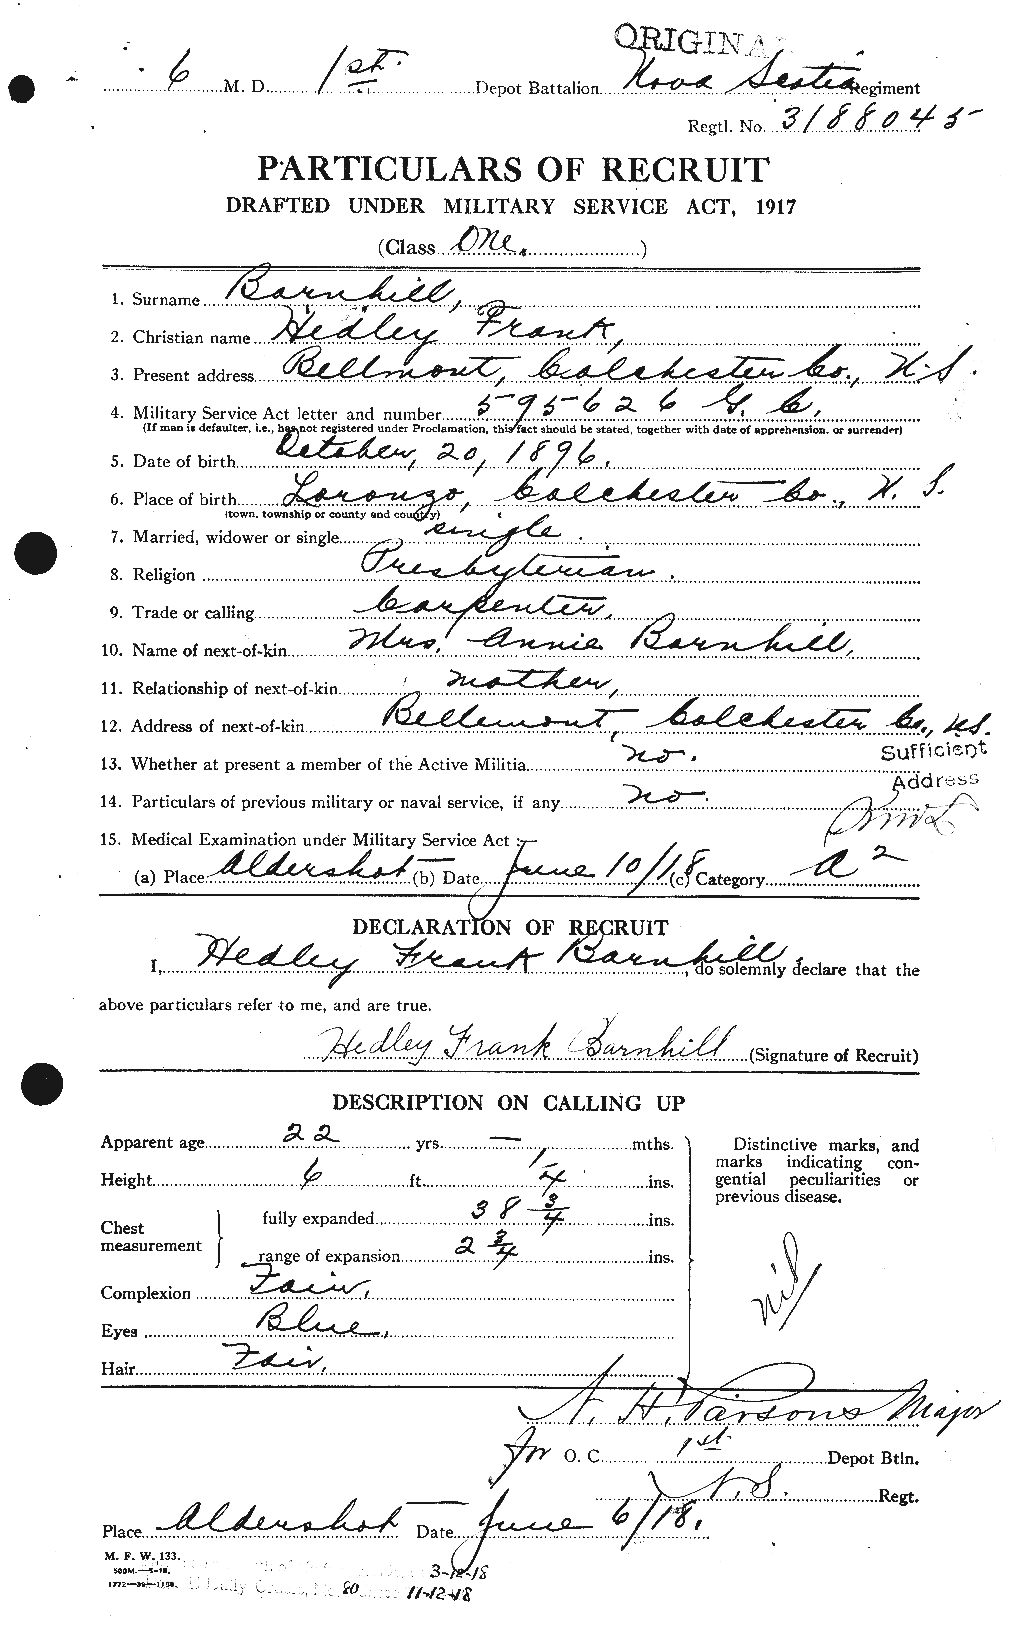 ORIGINA
6 M. D. 1st. Depot Battalion Nova Scotia Regiment
Regtl. No. 3188045
PARTICULARS OF RECRUIT
DRAFTED UNDER MILITARY SERVICE ACT, 1917
(Class One. )
1. Surname Barnhill,
2. Christian name Hedley Frank,
3. Present address Bellmont, Colchester Co., N.S.
4. Military Service Act letter and number 595626 G. C.
(If man is defaulter, i.e., has not registered under Proclamation, this fact should be stated, together with date of apprehension. or surrender)
5. Date of birth October, 20, 1896.
6. Place of birthLoronzo, Colchester Co., N. S.
(town, township or county and country)
7. Married, widower or single single.
8. Religion Presbyterian.
9. Trade or calling Carpenter,
10. Name of next-of-kin Mrs. Annie Barnhill,
11. Relationship of next-of-kin mother,
12. Address of next-of-kin Bellemont, Colchester Co., N.S.
13. Whether at present a member of the Active Militia no.
Sufficient
Address
14. Particulars of previous military or naval service, if any no.
15. Medical Examination under Military Service Act :—
(a) Place Aldershot (b) Date June 10/18 (c) Category A2
DECLARATION OF RECRUIT
I, Hedley Frank Barnhill, do solemnly declare that the
above particulars refer to me, and are true.
Hedley Frank Barnhill (Signature of Recruit)
DESCRIPTION ON CALLING UP
Apparent age 22 yrs. — mths.
Height 6 ft. 1/4 ins.
Chest measurement
fully expanded 38 3/4 ins.
range of expansion 2 3/4 ins.
Complexion Fair,
Eyes Blue,
Hair Fair,
Distinctive marks, and
marks indicating con-
genital peculiarities or
previous disease.
nil
N. H. Parsons Major
for O. C. 1st Depot Btln.
N.S. Regt.
Place Aldershot Date June 6/18.
M. F. W. 133.
500M.—5-18.
3-12-18
80
11-12-18